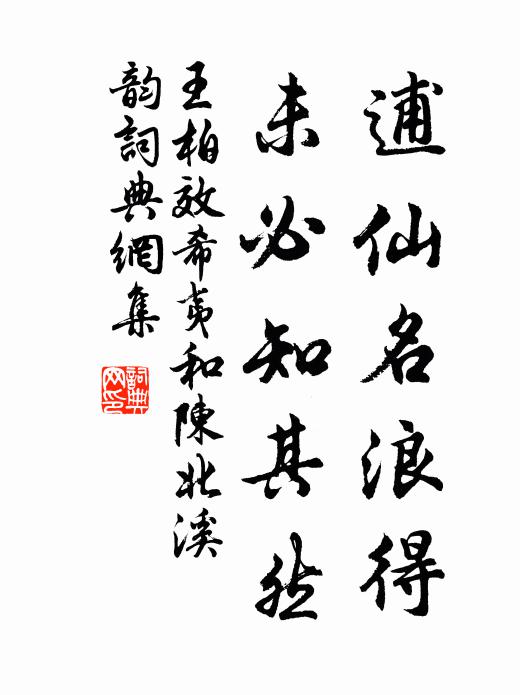 逋仙名浪得
未必知其然
王柏效希夷和陳北溪
韵詞典網集
詞典网印